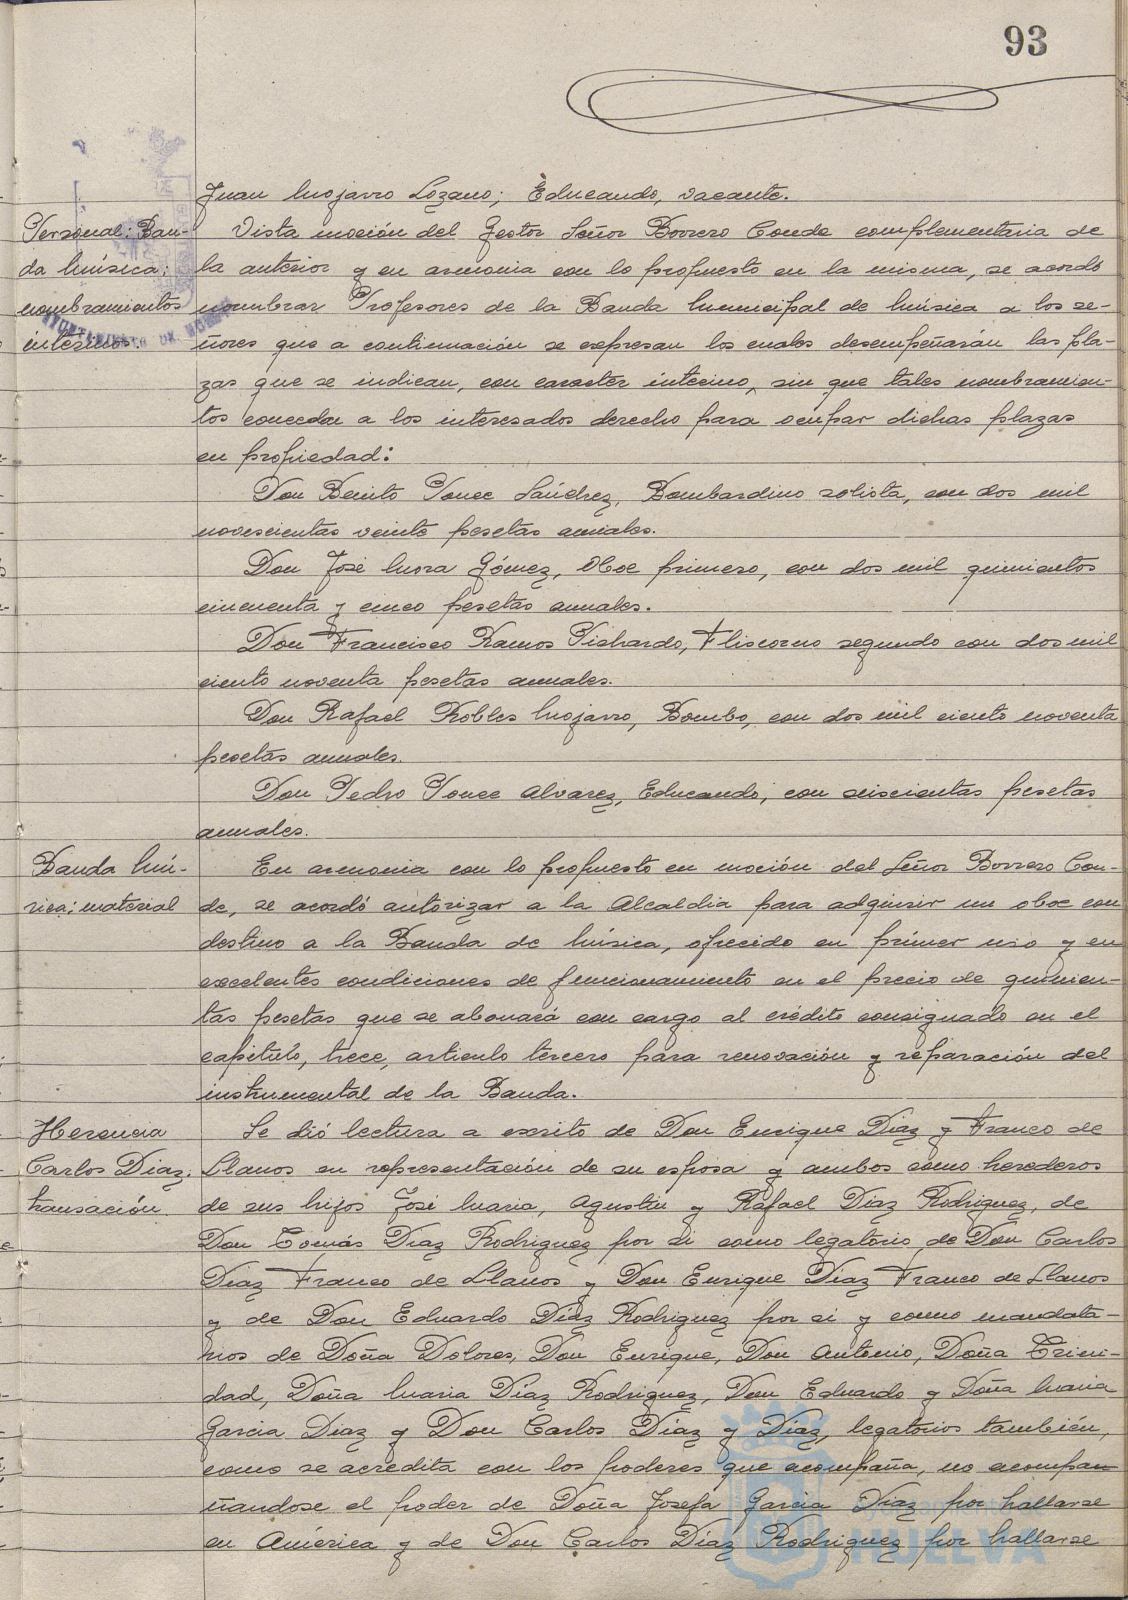 93
Juan Mojarro Lozano; Educando, vacante.
Personal: Ban-
da Música;
nombramientos
interinos.
Vista moción del Gestor Señor Borrero Conde complementaria de
la anterior y en armonia con lo propuesto en la misma, se acordó
nombrar Profesores de la Banda Municipal de Música a los se-
ñores que a continuación se expresan los cuales desempeñarán las pla-
zas que se indican, con caracter interino, sin que tales nombramien-
tos concedan a los interesados derecho para ocupar dichas plazas
en propiedad:
Don Benito Ponce Sánchez, Bombardino solista, con dos mil
novescientas veinte pesetas anuales.
Don José Mora Gómez, Oboe primero, con dos mil quinientos
cincuenta y cinco pesetas anuales.
Don Francisco Ramos Pichardo, Fliscorno segundo con dos mil
ciento noventa pesetas anuales.
Don Rafael Robles Mojarro, Bombo, con dos mil ciento noventa
pesetas anuales.
Don Pedro Ponce Alvarez, Educando, con seiscientas pesetas
anuales.
Banda Mú-
sica; material
En armonia con lo propuesto en moción del Señor Borrero Con-
de, se acordó autorizar a la Alcaldia para adquirir un oboe con
destino a la Banda de Música, ofrecido en primer uso y en
excelentes condiciones de funcionamiento en el precio de quinien-
tas pesetas que se abonará con cargo al crédito consignado en el
capitulo, trece, articulo tercero para renovación y reparación del
instrumental de la Banda.
Herencia
Carlos Diaz;
transación
Se dió lectura a escrito de Don Enrique Diaz y Franco de
Llanos en representación de su esposa y ambos como herederos
de sus hijos José Maria, Agustin y Rafael Diaz Rodriguez, de
Don Tomás Diaz Rodriguez por si como legatario de Don Carlos
Diaz Franco de Llanos y Don Enrique Diaz Franco de Llanos
y de Don Eduardo Diaz Rodriguez por si y como mandata-
rios de Doña Dolores, Don Enrique, Don Antonio, Doña Trini-
dad, Doña Maria Diaz Rodriguez, Don Eduardo y Doña Maria
Garcia Diaz y Don Carlos Diaz y Diaz, legatarios también,
como se acredita con los poderes que acompaña, no acompa-
ñandose el poder de Doña Josefa Garcia Diaz por hallarse
en América y de Don Carlos Diaz Rodriguez por hallarse
Ayuntamiento de
HUELVA